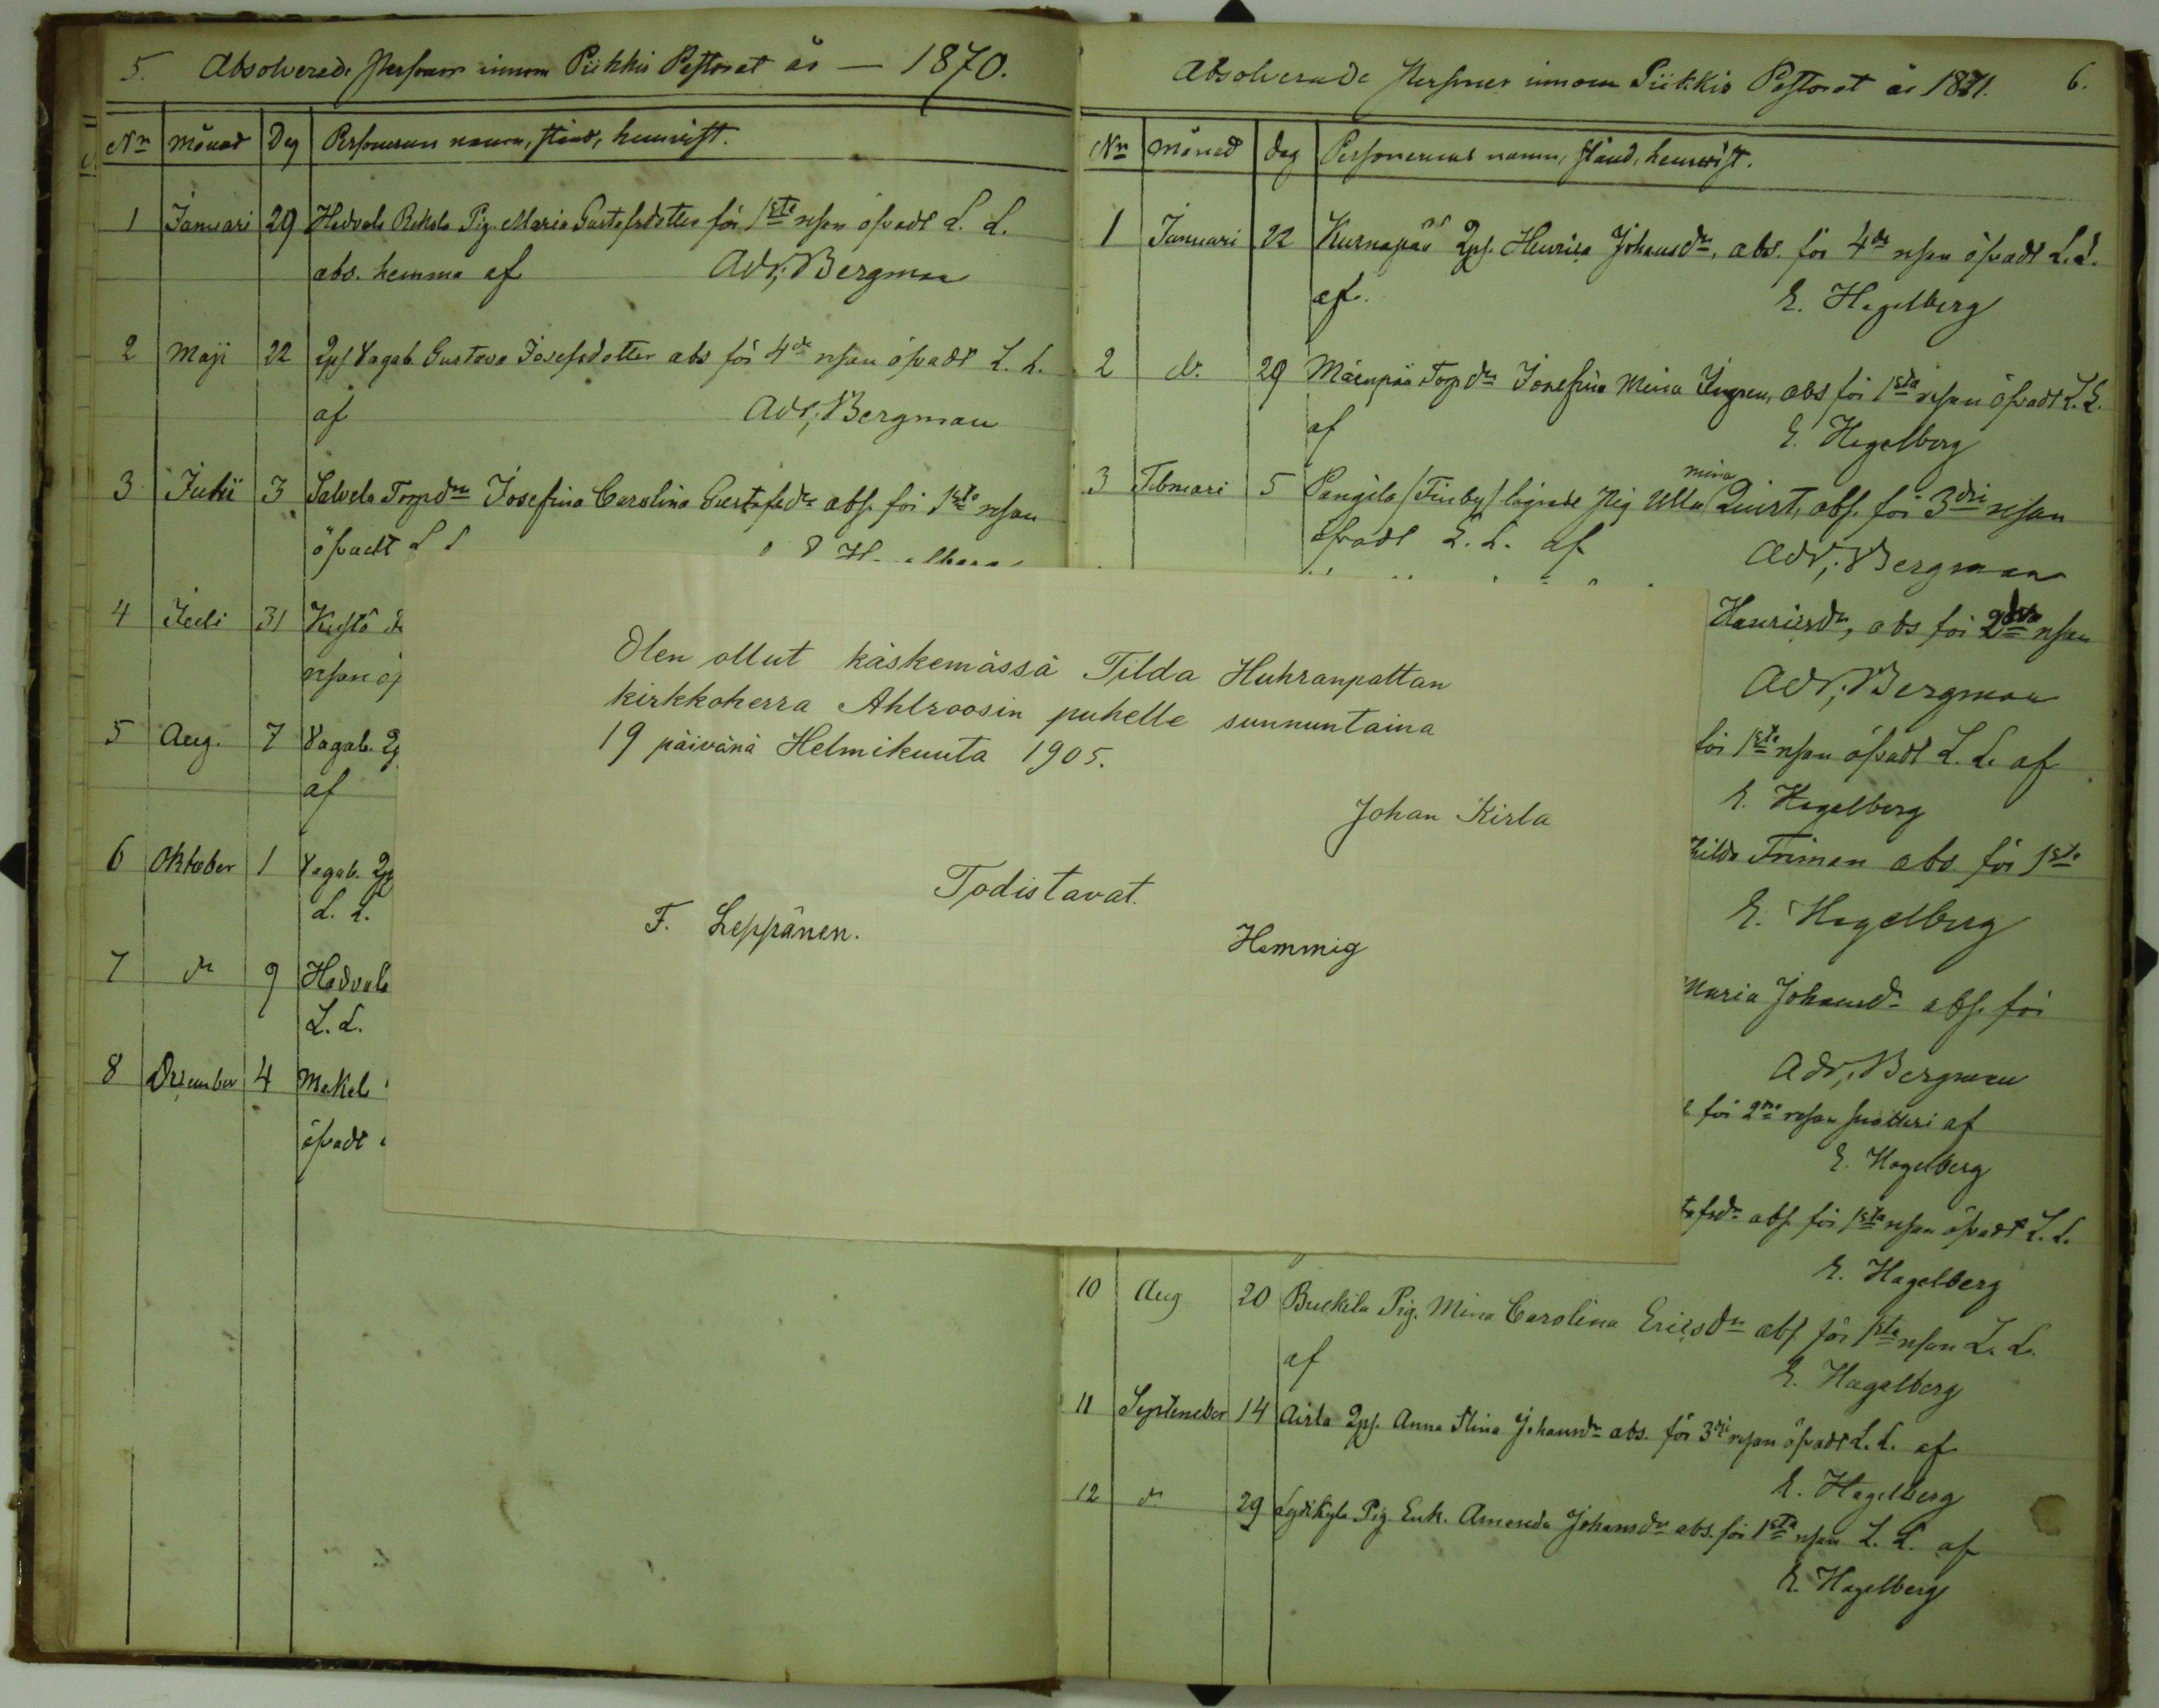 5. Absolverade Personer innom Piikkis Pastorat år — 1870.
Nr Månad Dag Personernas namn, stånd, hemvist.
1 Januari 29 Hadvala Rekola Pig. Maria Gustafsdotter för 1sta resan öfvadt L. L.
abs. hemma af Adr; Bergman
2 Maji 22 Qpf Vagab. Gustava Josefsdotter abs för 4de resan öfvadt L. L.
af Adr; Bergman
3 Julii 3 Salvela Torpdr Josefina Carolina Gustafsdr abs. för 1sta resan
öfvadt L L
4 Juli 31 Kustö
resan
5 Aug. 7 Vagab.
af
6 Oktober 1 Vagab.
L. L.
7 dr 9 Hadvala
L. L.
8 December 4 Makel
öfvadt
Olen ollut käskemässä Tilda Huhranpattan
kirkkoherra Ahlroosin puhelle sunnuntaina
19 päivänä Helmikuuta 1905.
Johan Kirla
Todistavat.
F. Leppänen. Hemmig
Absolverade Personer innom Piikkis Pastorat år 1871. 6.
Nr Månad dag Personernas namn, stånd, hemvist.
1 Januari 22 Kurnapää Qpf. Henrica Johansdr, abs. för 4de resan öfvadt L.L.
af. E. Hagelberg
2 dr. 29 Mäenpää Torpdr Josefina Mina abs för 1sta resan öfvadt L.L.
af E. Hagelberg
3 Februari 5 Pangila (Finby) Pig Ulla mina Quist, abs. för 3dje resan
öfvadt L. L. af Adr; Bergman
Henricsdr, abs för 2dra resan
Adr; Bergman
för 1sta resan öfvadt L. L. af
E. Hagelberg
hilda Friman abs. för 1sta
E. Hagelberg
Maria Johansdr abs. för
Adr; Bergman
för 2dra resan af
E. Hagelberg
tafsdr abs. för 1sta resan öfvadt L. L.
E. Hagelberg
10 Aug 20 Buckila Pig. Mina Carolina Ericsdr abs för 1sta resan L. L.
af E. Hagelberg
11 September 14 Airla Qpf. Anna Stina Johansdr abs. för 3dje resan öfvadt L. L. af
E. Hagelberg
12 dr 29 Pig. Enk. Amanda Johansdr abs. för 1sta resan L. L. af
E. Hagelberg